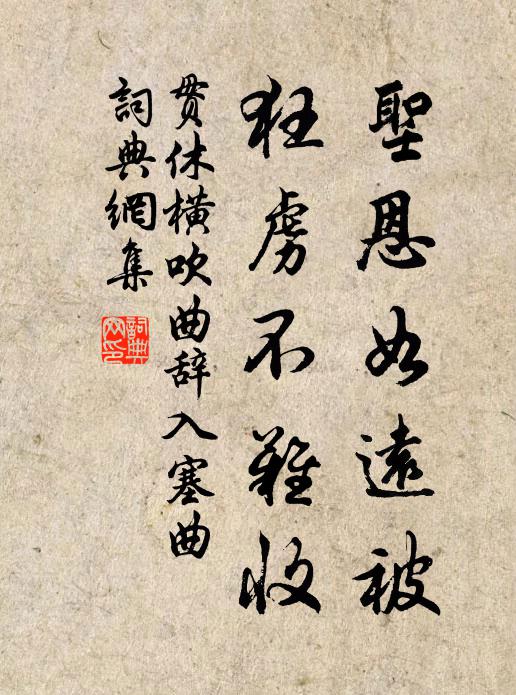 聖恩如遠被
狂虜不難收
贯休横吹曲辞入塞曲
詞典網集
詞典網印